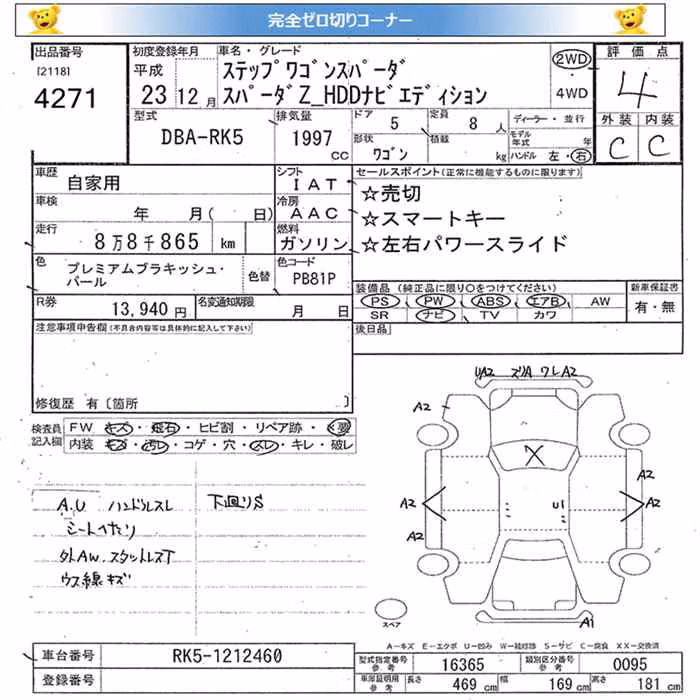 完全ゼロ切りコーナー
出品番号 初度登録年月 車名・グレード 評価点
[2118] 平成 ステップワゴンスパーダ 2WD 4
4271 23 12月 スパーダZ_HDDナビエディション 4WD
外装 内装
型式 排気量 ドア 5 定員 8人 ディーラー・並行 C C
DBA-RK5 1997 cc 形状 ワゴン 積載 kg モデル年式 年
ハンドル 左・右
車歴 自家用 シフト IAT セールスポイント(正常に機能するものに限ります)
車検 年 月( 日) 冷房 AAC ☆売切
走行 8万8千865 km 燃料 ガソリン ☆スマートキー
☆左右パワースライド
色 プレミアムブラキッシュ・パール 色替 色コード PB81P
装備品(純正品に限り○をつけてください) 新車保証書
PS PW ABS エアB AW 有・無
R券 13,940円 名変通知期限 月 日 SR ナビ TV カワ
注意事項申告欄(不具合内容等は具体的に記入して下さい) 後日品
修復歴 有〔箇所 〕
検査員記入欄 FW キズ・飛石・ヒビ割・リペア跡・×要
内装 キズ・汚レ・コゲ・穴・スレ・キレ・破レ
UA2 ズリA ワレA2
A2
X
A.U ハンドルスレ 下廻りS
シートヘタリ
外AW.スタッドレスT
ウス線キズ
A2 U1 A2
A2
A2
A1
スペア
A=キズ E=エクボ U=凹み W=補修跡 S=サビ C=腐食 XX=交換済
車台番号 RK5-1212460
登録番号
型式指定番号 参考 16365 類別区分番号 参考 0095
車庫証明用 参考 長さ 469cm 幅 169cm 高さ 181cm